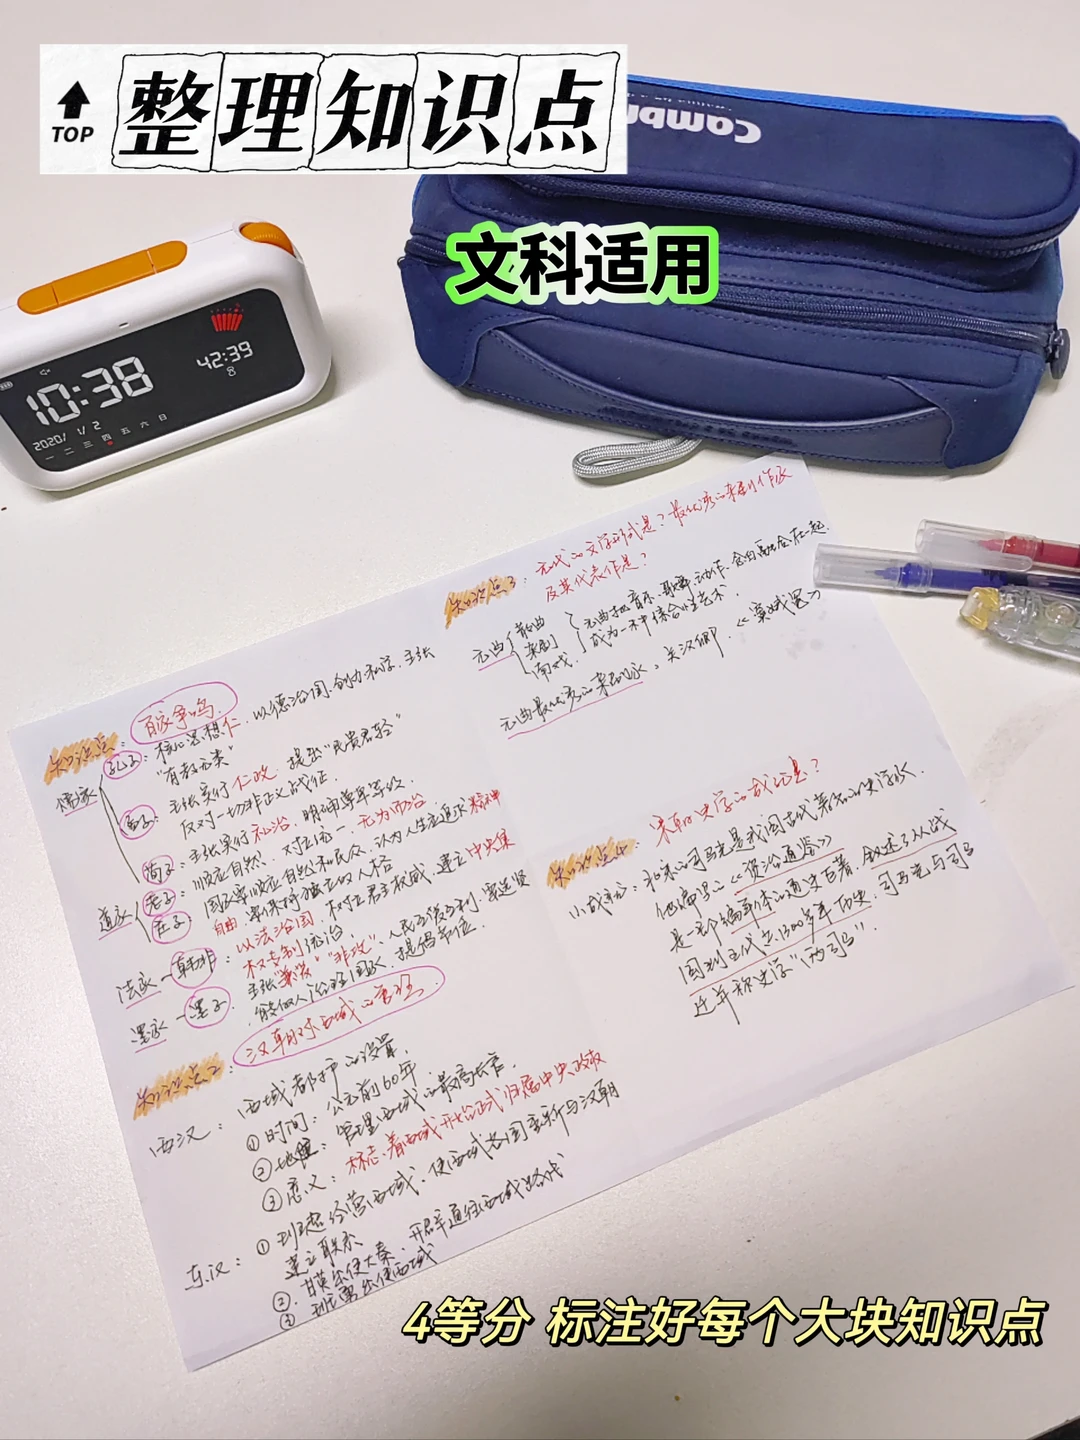 TOP
整理知识点
Cambr
文科适用
10:38
42:39
8
2020/ 1/ 2
一 二 三 四 五 六 日
知识点1：
百家争鸣
儒家
孔子：核心思想仁，以德治国，创办私学，主张
“有教无类”
孟子：主张实行仁政，提出“民贵君轻”
反对一切非正义战争，
荀子：主张实行礼治，明确尊卑等级
道家
老子：顺应自然，对立统一，无为而治
庄子：
自由，
法家－韩非：以法治国，树立君主权威，建立中央集
权专制统治，
墨家－墨子，主张“兼爱”“非攻”，
知识点2：
汉朝对西域的管理
西汉：西域都护的设置，
①时间：公元前60年
②地位：管理西域的最高长官，
③意义：标志着西域开始正式归属中央政权
东汉：①班超经营西域，使西域各国重新与汉朝
建立联系
②，甘英出使大秦，开辟通往西域路线
③班勇出使西域
知识点3：
元代的文学形式是？最优秀的杂剧作家
及其代表作是？
元曲
散曲
杂剧
南戏，
元曲把音乐、歌舞、动作、念白融合在一起，
成为一种综合性艺术，
元曲最优秀的杂剧家，关汉卿，《窦娥冤》
知识点4：
宋朝史学的成就是？
北宋的司马光是我国古代著名的史学家，
他编写的《资治通鉴》
是一部编年体的通史巨著，叙述了从战
国到五代共1300多年历史，司马光与司马
迁并称史学“两司马”，
4等分 标注好每个大块知识点